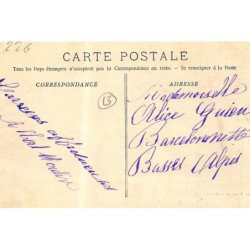 226
CARTE POSTALE
Tous les Pays étrangers n'acceptent pas la Correspondance au recto. - Se renseigner à la Poste
CORRESPONDANCE
ADRESSE
13
Mademoiselle
Alice
Barcelonnette
Basses Alpes
affectueuses
Albert